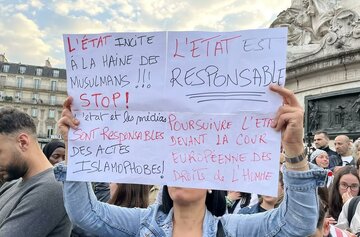 L'ÉTAT INCITE
À LA HAINE DES
MUSULMANS !!!
STOP!
L'état et les médias
SONT RESPONSABLES
DES ACTES
ISLAMOPHOBES!
L'ETAT EST
RESPONSABLE
POURSUIVRE L'ETAT
DEVANT LA COUR
EUROPÉENNE DES
DROITS DE L'HOMME